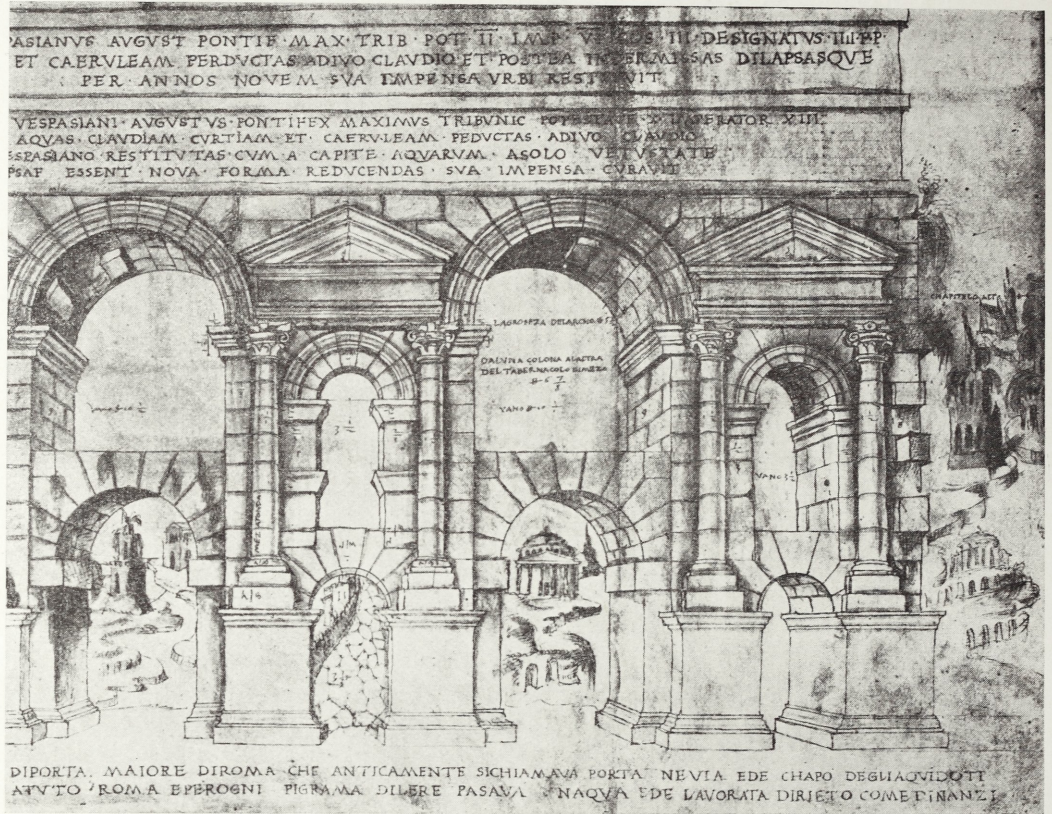 ASIANVS AVGVST PONTIF · MAX · TRIB · POT II IMP COS III · DESIGNATVS · IIII · P.P.
ET CAERVLEAM PERDVCTAS ADIVO CLAVDIO ET POSTEA INTERMISSAS DILAPSASQVE
PER · ANNOS NOVEM SVA IMPENSA VRBI RESTITVIT
VESPASIANI · AVGVSTVS · PONTIFEX MAXIMVS TRIBVNIC POTESTATE X IMPERATOR XIII
AQVAS · CLAVDIAM · CVRTIAM · ET · CAERVLEAM · PEDVCTAS · ADIVO CLAVDIO
SPASIANO RESTITVTAS · CVM A CAPITE · AQVARVM · ASOLO VETVSTATE
ESSENT · NOVA · FORMA · REDVCENDAS · SVA IMPENSA · CVRAVIT
CHAPITELO
LAGROSEZA DELARCHO
DALUNA COLONA ALALTRA
DEL TABERNACOLO
VANO
3 1/2
VANO 3 1/2
DIPORTA. MAIORE DIROMA CHE ANTICAMENTE SICHIAMAVA PORTA NEVIA EDE CHAPO DEGLIAQVIDOTI
ATVTO ROMA EPEROGNI PIGRAMA DILERE PASAVA NAQVA EDE LAVORATA DIRIETO COME DINANZI